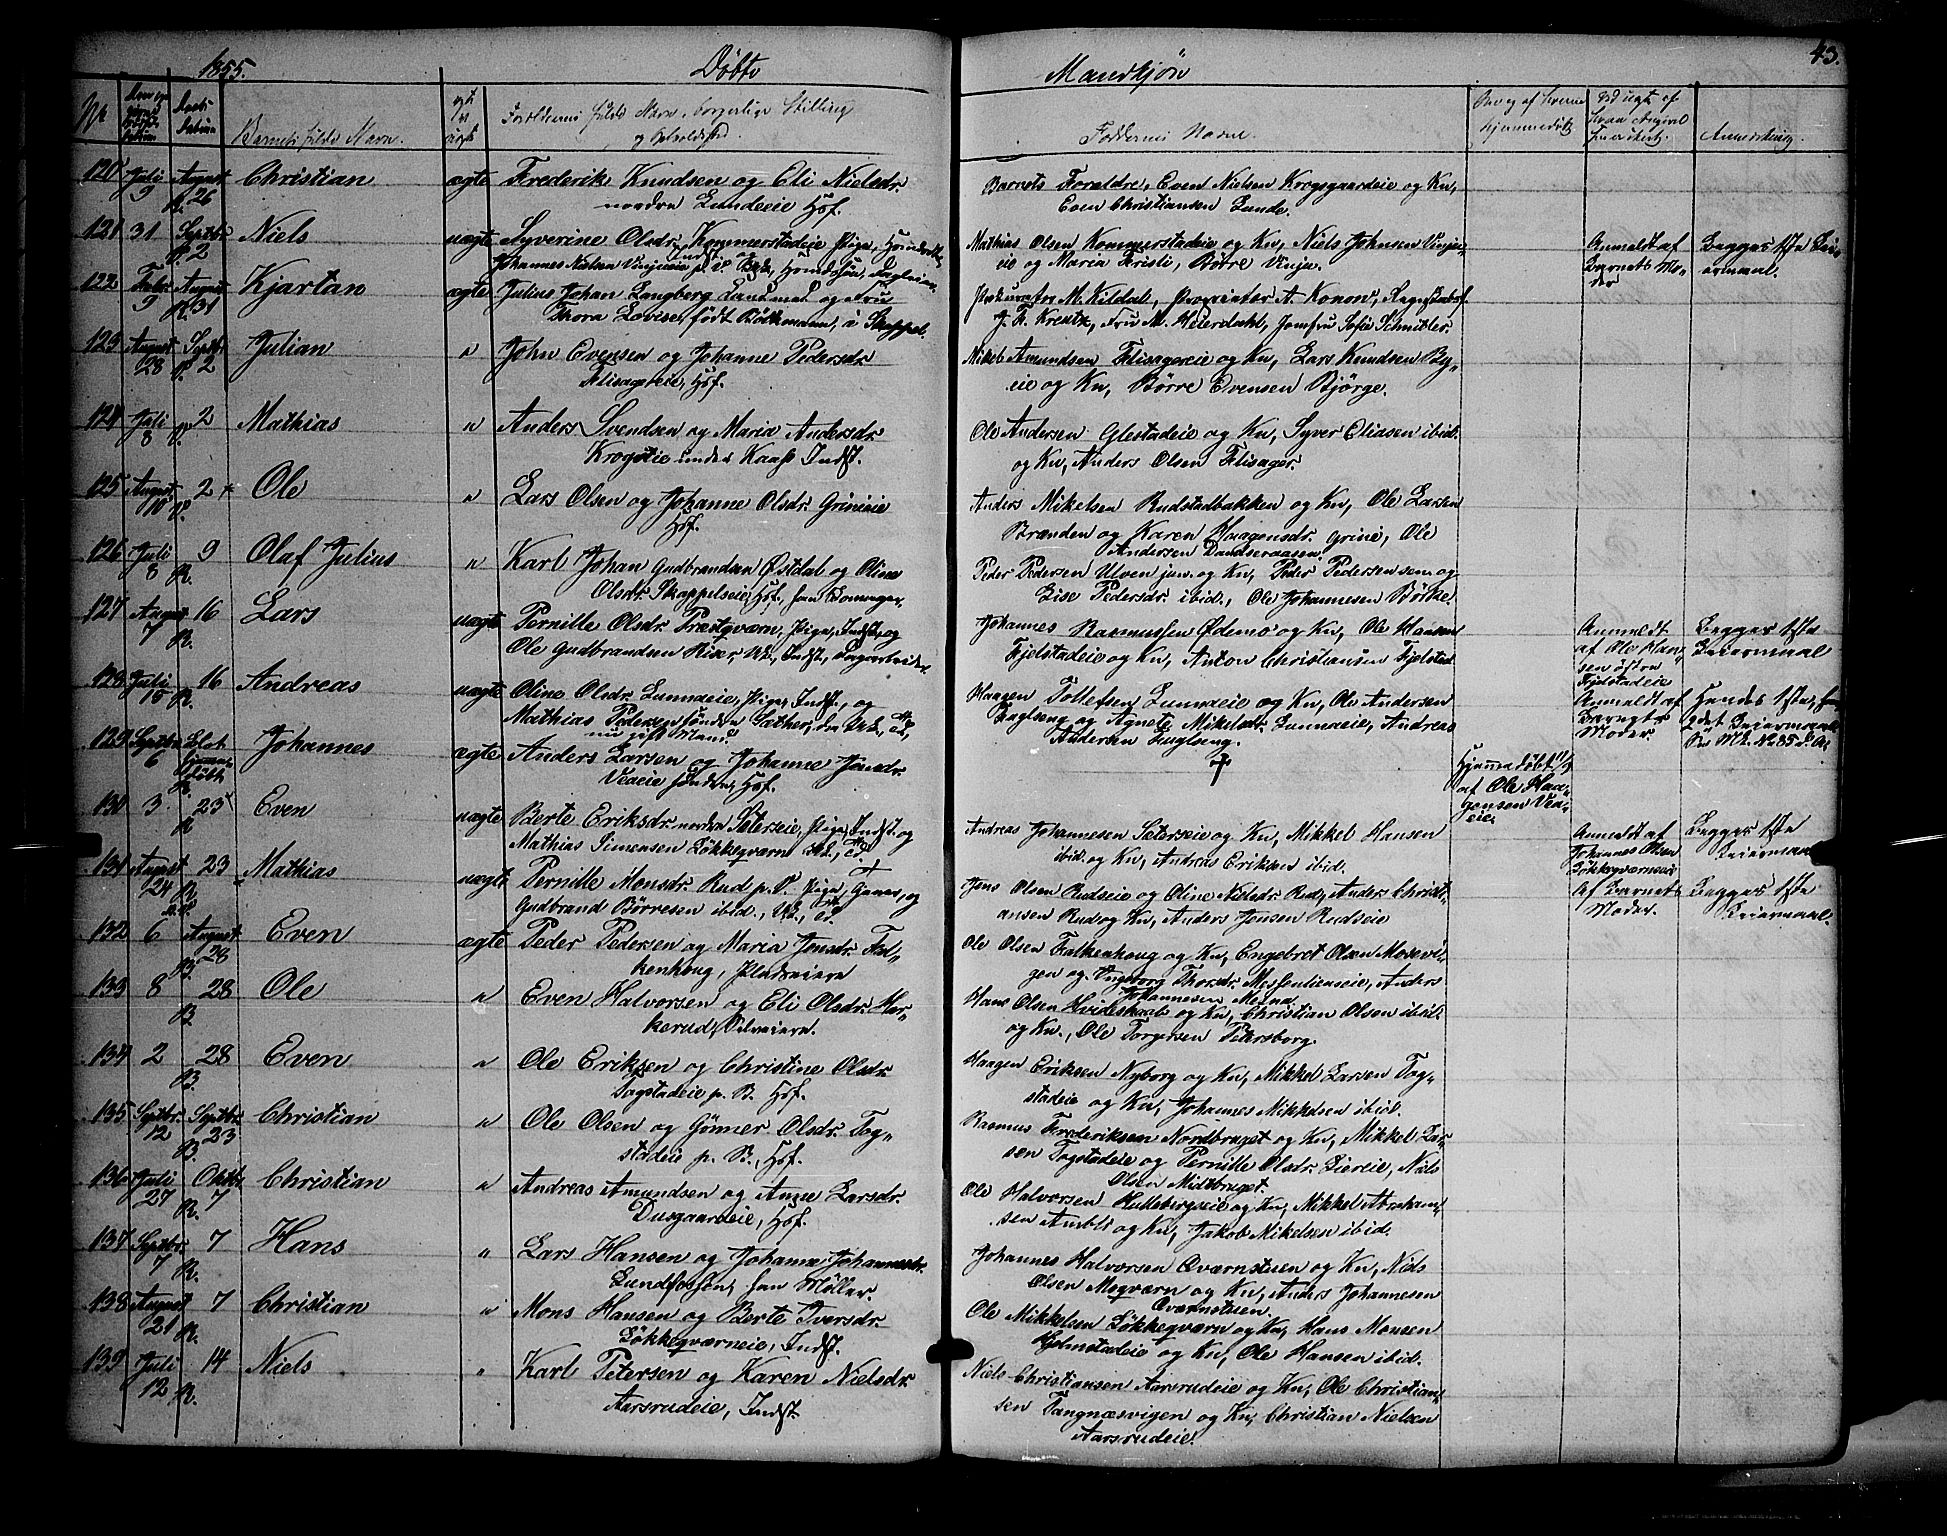 1855.
Döbte
Mandkjön
43.
No
Daabs Datum
Barnets fulde Navn.
ægte el. uægte
Forældrenes fulde Navn, borgerlige Stilling
og Opholdssted.
Faddernes Navne.
Anmærkning.
120 Juli 9 August 26 R. Christian ægte Frederik Knudsen og Eli Nielsdr.
nordre Lundeeie Hsf.
Barnets Forældre, Even Nielsen Krogsgaardeie og Kn,
Even Christiansen Lunde.
121 31 Septbr. 2 P. Niels uægte Syverine Olsdr. Kommerstadeie Pige,
Johannes Nielsen Vinjueie p. V.
Mathias Olsen Kommerstadeie og Kn, Niels Johnsen Vinju-
eie og Maria Kristi, Börre Vinju.
Anmeldt af
Barnets Mo-
der
Begges 1ste Leier-
maal.
122 Febr. 9 August 31 R. Kjartan ægte Julius Johan Langberg Landmd og Fru
Thora Lovise, født Böckmann, à Skappel.
M. Kildal, Proprietær A. Konow,
J. F. Kreutz, Fru M. Heierdahl, Jomfru Sofie Schnitler.
123 August 28 Septbr. 2 P. Julian " John Evensen og Johanne Pedersdr.
Flisagereie, Hsf.
Mikel Amundsen Flisagereie og Kn, Lars Knudsen By-
eie og Kn, Börre Evensen Bjørge.
124 Juli 8 2 V. Mathias " Anders Svendsen og Maria Andersdr.
Krogstie under Kaass Indst.
Ole Andersen Glestadeie og Kn, Syver Eliasen ibid.
og Kn, Anders Olsen Flisager.
125 August 10 2 V. Ole " Lars Olsen og Johanne Olsdr. Grineeie
Hsf.
Anders Mikelsen Rudstadbakken og Kn, Ole Larsen
Brænden og Karen Haagensdr. Grine, Ole
Andersen Dandseraasen.
126 Juli 8 9 R. Olaf Julius " Karl Johan Gudbrandsen Østdal og Oline
Olsdr. Skappelseie, Hsf.
Peder Pedersen Ulven jun. og Kn, Peder Pedersen sen. og
Lise Pedersdr. ibid., Ole Johannesen Börke.
127 August 7 16 R. Lars uægte Pernille Olsdr. Præstqværn, Pige, Indst., og
Ole Gudbrandsen Riser, Uk., Indst., Dagarbeider.
Johannes Rasmussen Ödemo og Kn, Ole Hansen
Fjelstadeie og Kn, Anton Christiansen Fjelstad.
Anmeldt
af Ole Han-
sen östre
Fjelstadeie
Begges 1ste
Leiermaal
128 Juli 15 16 R. Andreas uægte Oline Olsdr. Lunnaeie, Pige, Indst., og
Mathias Pedersen söndre Sether, da Uk.,
nu gift Mand.
Haagen Tollefsen Lunnaeie og Kn, Ole Andersen
Fuglseng og Agnete Mikelsdr. Lunnaeie, Andreas
Andersen Fuglseng.
Anmeldt af
Barnets
Moder.
Hendes 1ste,
Leiermaal
No 85
129 Septbr. 6 Blot hjemme-
døbt Johannes ægte Anders Larsen og Johanne Jonsdr.
Veaeie söndre, Hsf.
Hjemmedöbt
af Ole Haa-
gensen Vea-
eie.
130 3 23 R Even uægte Berte Eriksdr. nordre Setereie, Pige, Indst. og
Mathias Simensen Løkkeqværn Uk.,
Andreas Johannesen Setereie og Kn, Mikkel Hansen
ibid. og Kn, Andreas Eriksen ibid.
Anmeldt af
Johannes Olsen
Løkkeqværnseie
Begges 1ste
Leiermaal
131 August 24 23 R Mathias uægte Pernille Monsdr. Rud p. V. Pige, og
Gudbrand Börresen ibid., Uk.,
Jens Olsen Rudseie og Oline Nilsdr. Rud, Anders Christi-
ansen Rud og Kn, Anders Jensen Rudseie
Af Barnets
Moder.
Begges 1ste
Leiermaal.
132 6 August 28 B. Even ægte Peder Pedersen og Maria Jonsdr. Fal-
kenhoug,
Ole Olsen Falkenhoug og Kn, Engebret Olsen Mosevi-
gen og Ingeborg Thorsdr. Messenlieneie, Anders
Johannesen Mesna.
133 8 28 B. Ole " Even Halvorsen og Eli Olsdr. Mar-
kerud, Selveiere.
Hans Olsen Hvideskaal og Kn, Christian Olsen ibid.
og Kn., Ole Torgersen Petersborg.
134 2 28 B. Even " Ole Eriksen og Christine Olsdr.
Togstadeie p. B. Hsf.
Haagen Eriksen Nyborg og Kn, Mikkel Larsen Tog-
stadeie og Kn, Johannes Mikkelsen ibid.
135 Septbr. 12 Septbr. 23 B. Christian " Ole Olsen og Günner Olsdr. Tog-
stadeie p. B., Hsf.
Rasmus Frederiksen Nordbruget og Kn, Mikkel Lar-
sen Togstadeie og Pernille Olsdr. Liereie, Niels
Olsen Midtbruget.
136 Juli 27 Oktbr. 7 R. Christian " Andreas Amundsen og Anne Larsdr.
Dusgaardeie, Hsf.
Ole Halvorsen Hullebergseie og Kn, Mikkel Abraham-
sen Ambli og Kn, Jakob Mikelsen ibid.
137 Septbr. 7 7 R. Hans " Lars Hansen og Johanne Johannesdr.
Lundfossen, han Möller.
Johannes Halvorsen Qværnstuen og Kn, Niels
Olsen Moqværn og Kn, Anders Johannesen
Qværnstuen.
138 August 21 7 R. Christian " Mons Hansen og Berte Iversdr.
Løkkeqværneie, Indst.
Ole Mikkelsen Løkkeqværn og Kn, Hans Monsen
Hjelmstadeie og Kn, Ole Hansen ibid.
139 Juli 12 14 R. Niels " Karl Petersen og Karen Nielsdr.
Aarsrudeie, Indst.
Niels Christiansen Aarsrudeie og Kn, Ole Christian-
sen Tangnæsvigen og Kn, Christian Nielsen
Aarsrudeie.